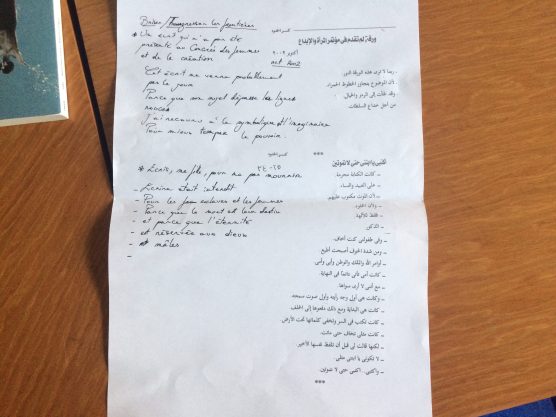 Briser / Transgression les frontières
* Un écrit qui n'a pas été
présenté au Congrès des femmes
et de la création
oct 2002
Cet écrit ne verra probablement
pas le jour
Parce que son sujet dépasse les lignes
rouges
J'ai recouru à la symbolique et l'imaginaire
Pour mieux tromper le pouvoir.
كسر الحدود
ورقة لم تقدم في مؤتمر المرأة والإبداع
أكتوبر ٢٠٠٢
ربما لا ترى هذه الورقة النور.
لأن الموضوع يتجاوز الخطوط الحمراء.
وقد لجأت إلى الرمز والخيال.
من أجل خداع السلطات.
***
كسر الحدود
٢٤-٢٥
* Écris, ma fille, pour ne pas mourir
- L'écriture était interdit
- Pour les esclaves et les femmes
- Parce que la mort est leur destin
- et parce que l'éternité
- est réservée aux dieux
- et mâles
-
اكتبي يا ابنتي حتى لا تموتين
ـ كانت الكتابة محرمة
ـ على العبيد والنساء.
ـ لأن الموت مكتوب عليهم
ـ ولأن الخلود
ـ فقط للآلهة
ـ الذكور
ـ وفي طفولتي كنت أخاف.
ـ ومن شدة الخوف أصبحت أطيع.
ـ أوامر الله والملك والوطن وأبي وأمي.
ـ كانت أمي تأتي دائما في النهاية.
ـ مع أنني لا أرى سواها.
ـ وكانت هي أول وجه رأيته وأول صوت سمعته.
ـ كانت هي البداية ومع ذلك دفعوها إلى الخلف.
ـ كانت تكتب في السر وتخفي كلماتها تحت الأرض
ـ كانت مثلي تخاف حتى ماتت.
ـ لكنها قالت لي قبل أن تلفظ نفسها الأخير
ـ لا تكوني يا ابنتي مثلي.
ـ واكتبي. اكتبي حتى لا تموتين.
***